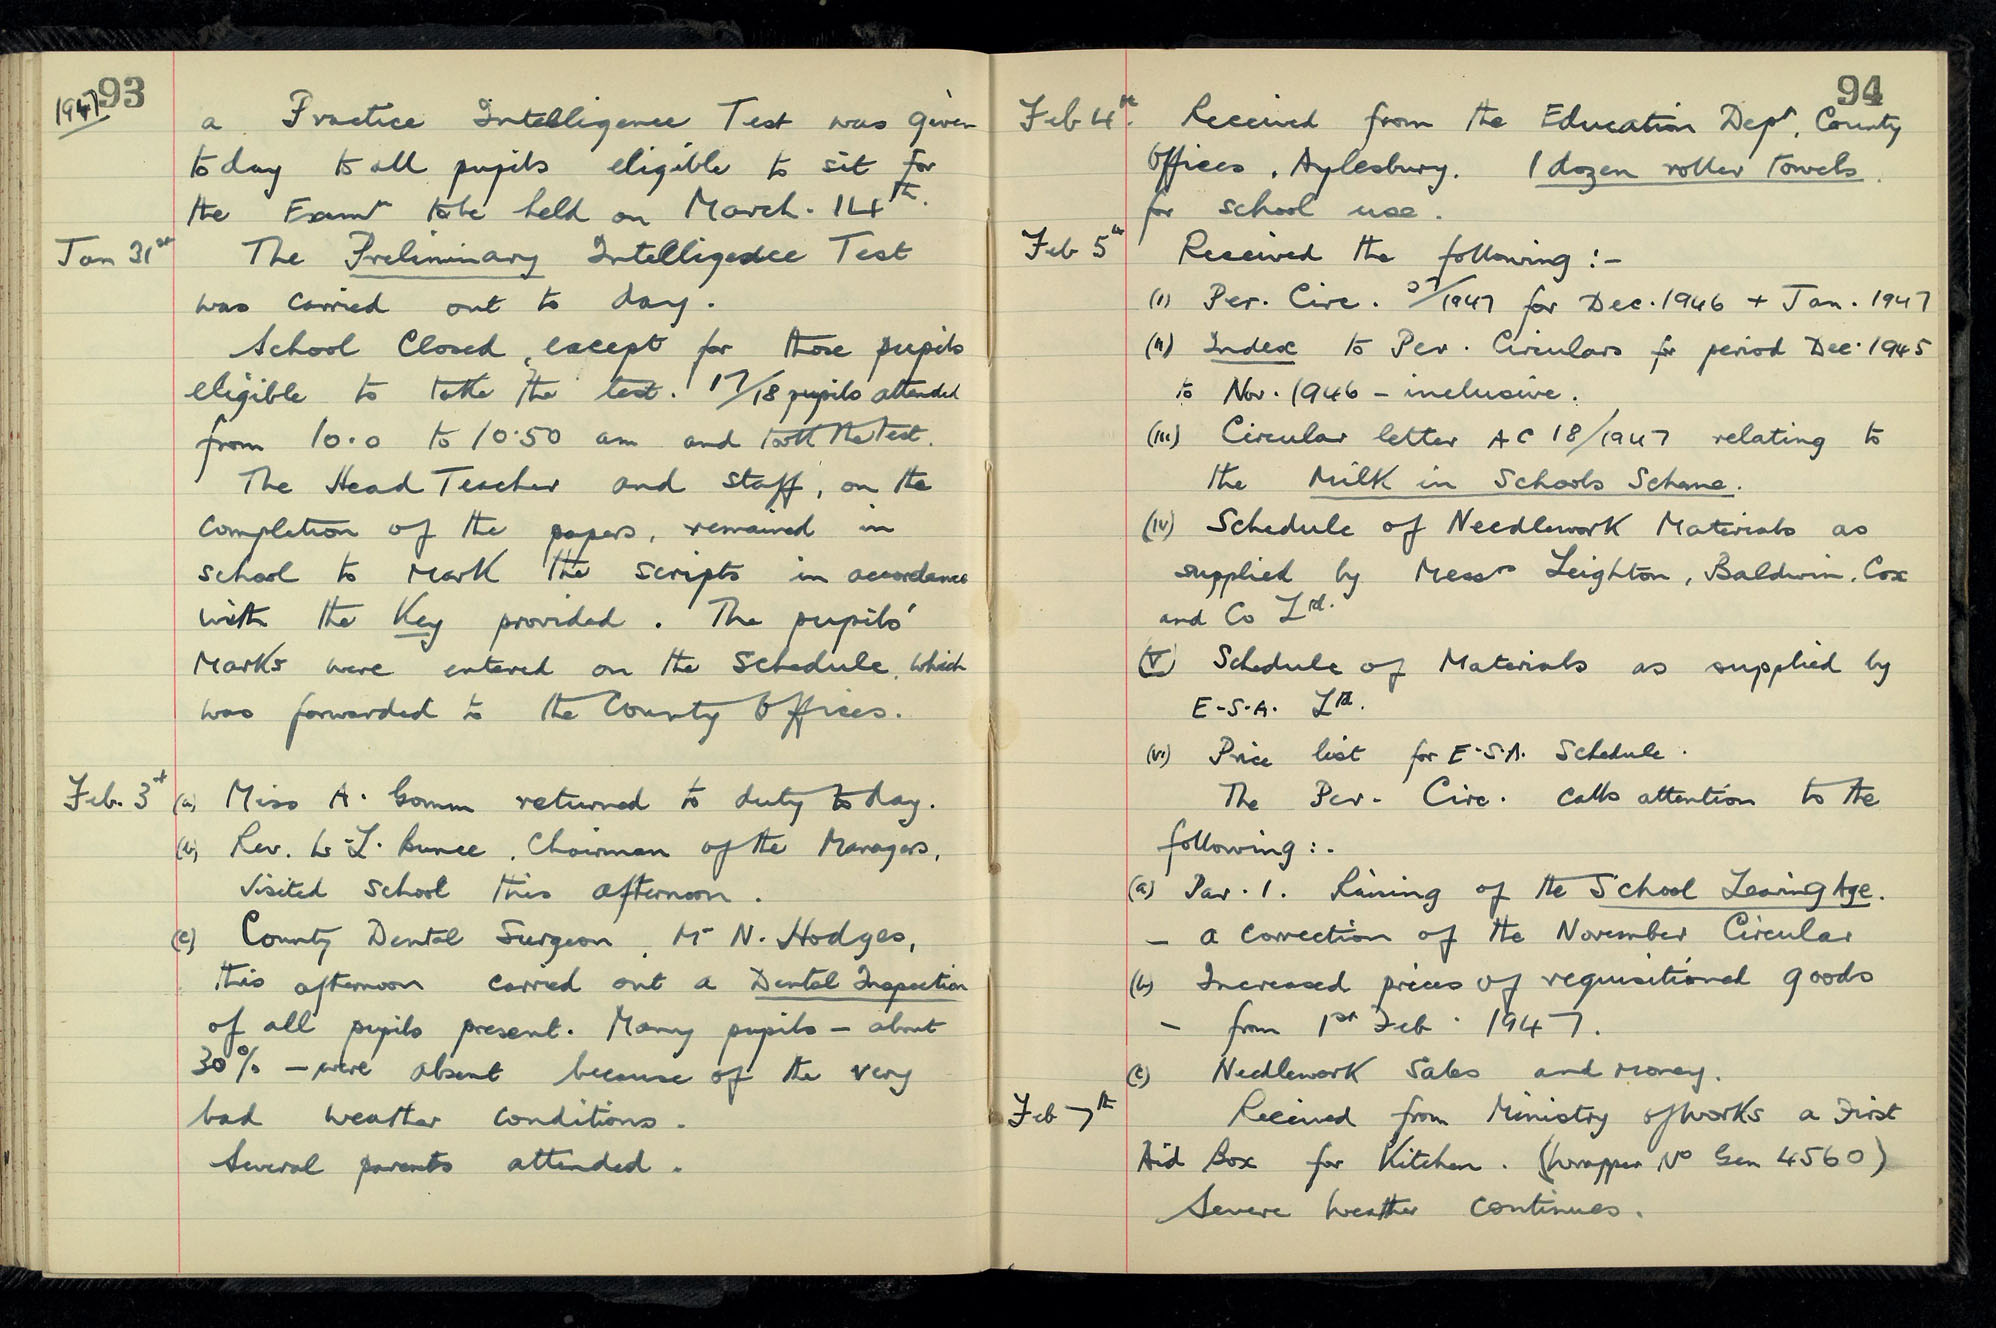 93
1947
a Practice Intelligence Test was given
today to all pupils eligible to sit for
the Examn to be held on March. 14th.
Jan 31st The Preliminary Intelligence Test
was carried out to day.
School Closed, except for those pupils
eligible to take the test. 17/18 pupils attended
from 10.0 to 10.50 am and took the Test.
The Head Teacher and staff, on the
completion of the papers, remained in
school to mark the scripts in accordance
with the Key provided. The pupils'
Marks were entered on the schedule, which
was forwarded to the County Offices.
Feb. 3rd (a) Miss A. Gomm returned to duty to day.
(b) Rev. W.L. Bunce, Chairman of the Managers,
visited school this afternoon.
(c) County Dental Surgeon, Mr N. Hodges,
this afternoon carried out a Dental Inspection
of all pupils present. Many pupils – about
30% – were absent because of the very
bad weather conditions.
Several parents attended.
94
Feb 4th. Received from the Education Dept, County
Offices, Aylesbury. 1 dozen roller towels.
for school use.
Feb 5th Received the following :-
(i) Per. Circ. 57/1947 for Dec. 1946 + Jan. 1947
(ii) Index to Per. Circulars for period Dec. 1945
to Nov. 1946 – inclusive.
(iii) Circular letter AC 18/1947 relating to
the Milk in Schools Scheme.
(iv) Schedule of Needlework Materials as
supplied by Messrs Leighton, Baldwin, Cox
and Co Ltd.
(v) Schedule of Materials as supplied by
E.S.A. Ltd.
(vi) Price list for E.S.A. Schedule.
The Per. Circ. calls attention to the
following :-
(a) Par. 1. Raising of the School Leaving Age.
– a correction of the November Circular
(b) Increased prices of requisitioned goods
– from 1st Feb. 1947.
(c) Needlework Sales and money.
Feb 7th Received from Ministry of Works a First
Aid Box for Kitchen. (Wrapper No Gen 4560)
Severe weather continues.